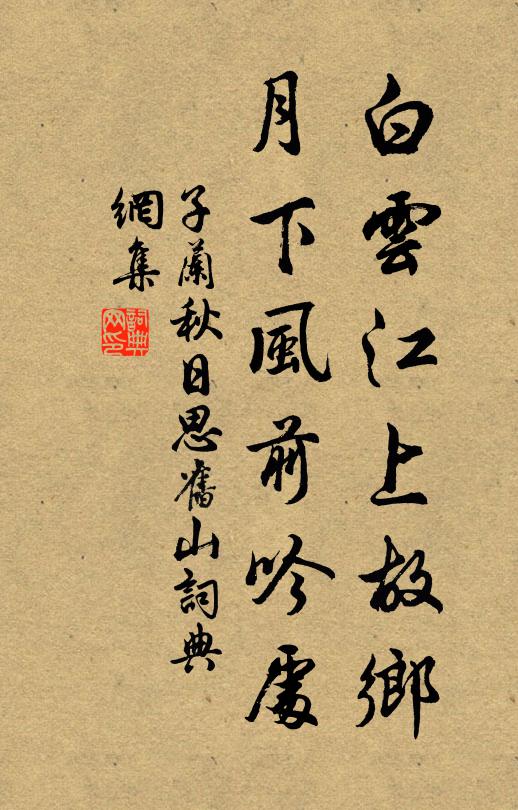 白雲江上故鄉
月下風前吟處
子蘭秋日思舊山詞典
網集
詞典
网印